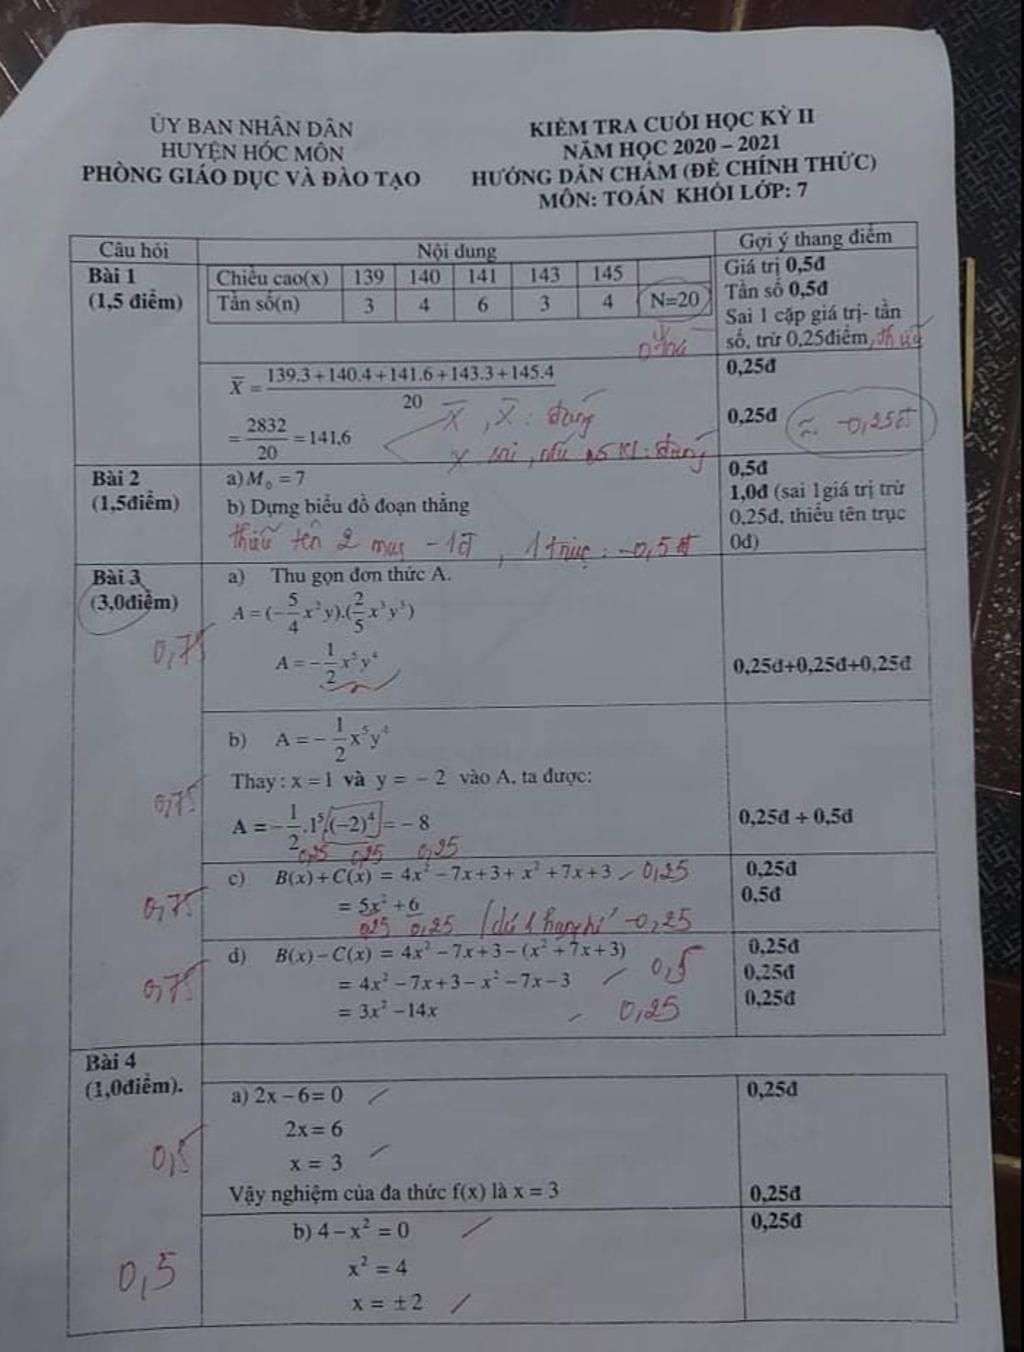 ỦY BAN NHÂN DÂN
HUYỆN HÓC MÔN
PHÒNG GIÁO DỤC VÀ ĐÀO TẠO
KIỂM TRA CUỐI HỌC KỲ II
NĂM HỌC 2020 – 2021
HƯỚNG DẪN CHẤM (ĐỀ CHÍNH THỨC)
MÔN: TOÁN KHỐI LỚP: 7
Câu hỏi Nội dung Gợi ý thang điểm
Bài 1
(1,5 điểm)
Chiều cao(x) 139 140 141 143 145
Tần số(n) 3 4 6 3 4 N=20
Giá trị 0,5đ
Tần số 0,5đ
Sai 1 cặp giá trị- tần
số, trừ 0,25điểm, thiếu
X̄ = (139.3+140.4+141.6+143.3+145.4)/20
= 2832/20 = 141,6
X̄, X̄: đúng
0,25đ
0,25đ
≈ -0,25đ
Bài 2
(1,5điểm)
a) M₀ = 7
b) Dựng biểu đồ đoạn thẳng
thiếu tên 2 trục -1đ, 1 trục: -0,5đ
0,5đ
1,0đ (sai 1giá trị trừ
0,25đ, thiếu tên trục
0đ)
Bài 3
(3,0điểm)
0,75
a) Thu gọn đơn thức A.
A = (-5/4 x²y).(2/5 x³y³)
A = -1/2 x⁵y⁴
0,25đ+0,25đ+0,25đ
0,75
b) A = - 1/2 x⁵y⁴
Thay : x = 1 và y = - 2 vào A, ta được:
A = -1/2 .1⁵.(-2)⁴ = - 8
0,25 0,25 0,25
0,25đ + 0,5đ
0,75
c) B(x)+C(x) = 4x² -7x+3+ x² +7x+3 0,25
= 5x² +6
0,25 0,25 -0,25
0,25đ
0,5đ
0,75
d) B(x)-C(x) = 4x² -7x+3-(x² +7x+3)
= 4x² -7x+3-x² -7x-3 0,5
= 3x² -14x 0,25
0,25đ
0,25đ
0,25đ
Bài 4
(1,0điểm).
0,5
a) 2x – 6= 0
2x = 6
x = 3
Vậy nghiệm của đa thức f(x) là x = 3
0,25đ
0,25đ
0,5
b) 4 – x² = 0
x² = 4
x = ±2
0,25đ